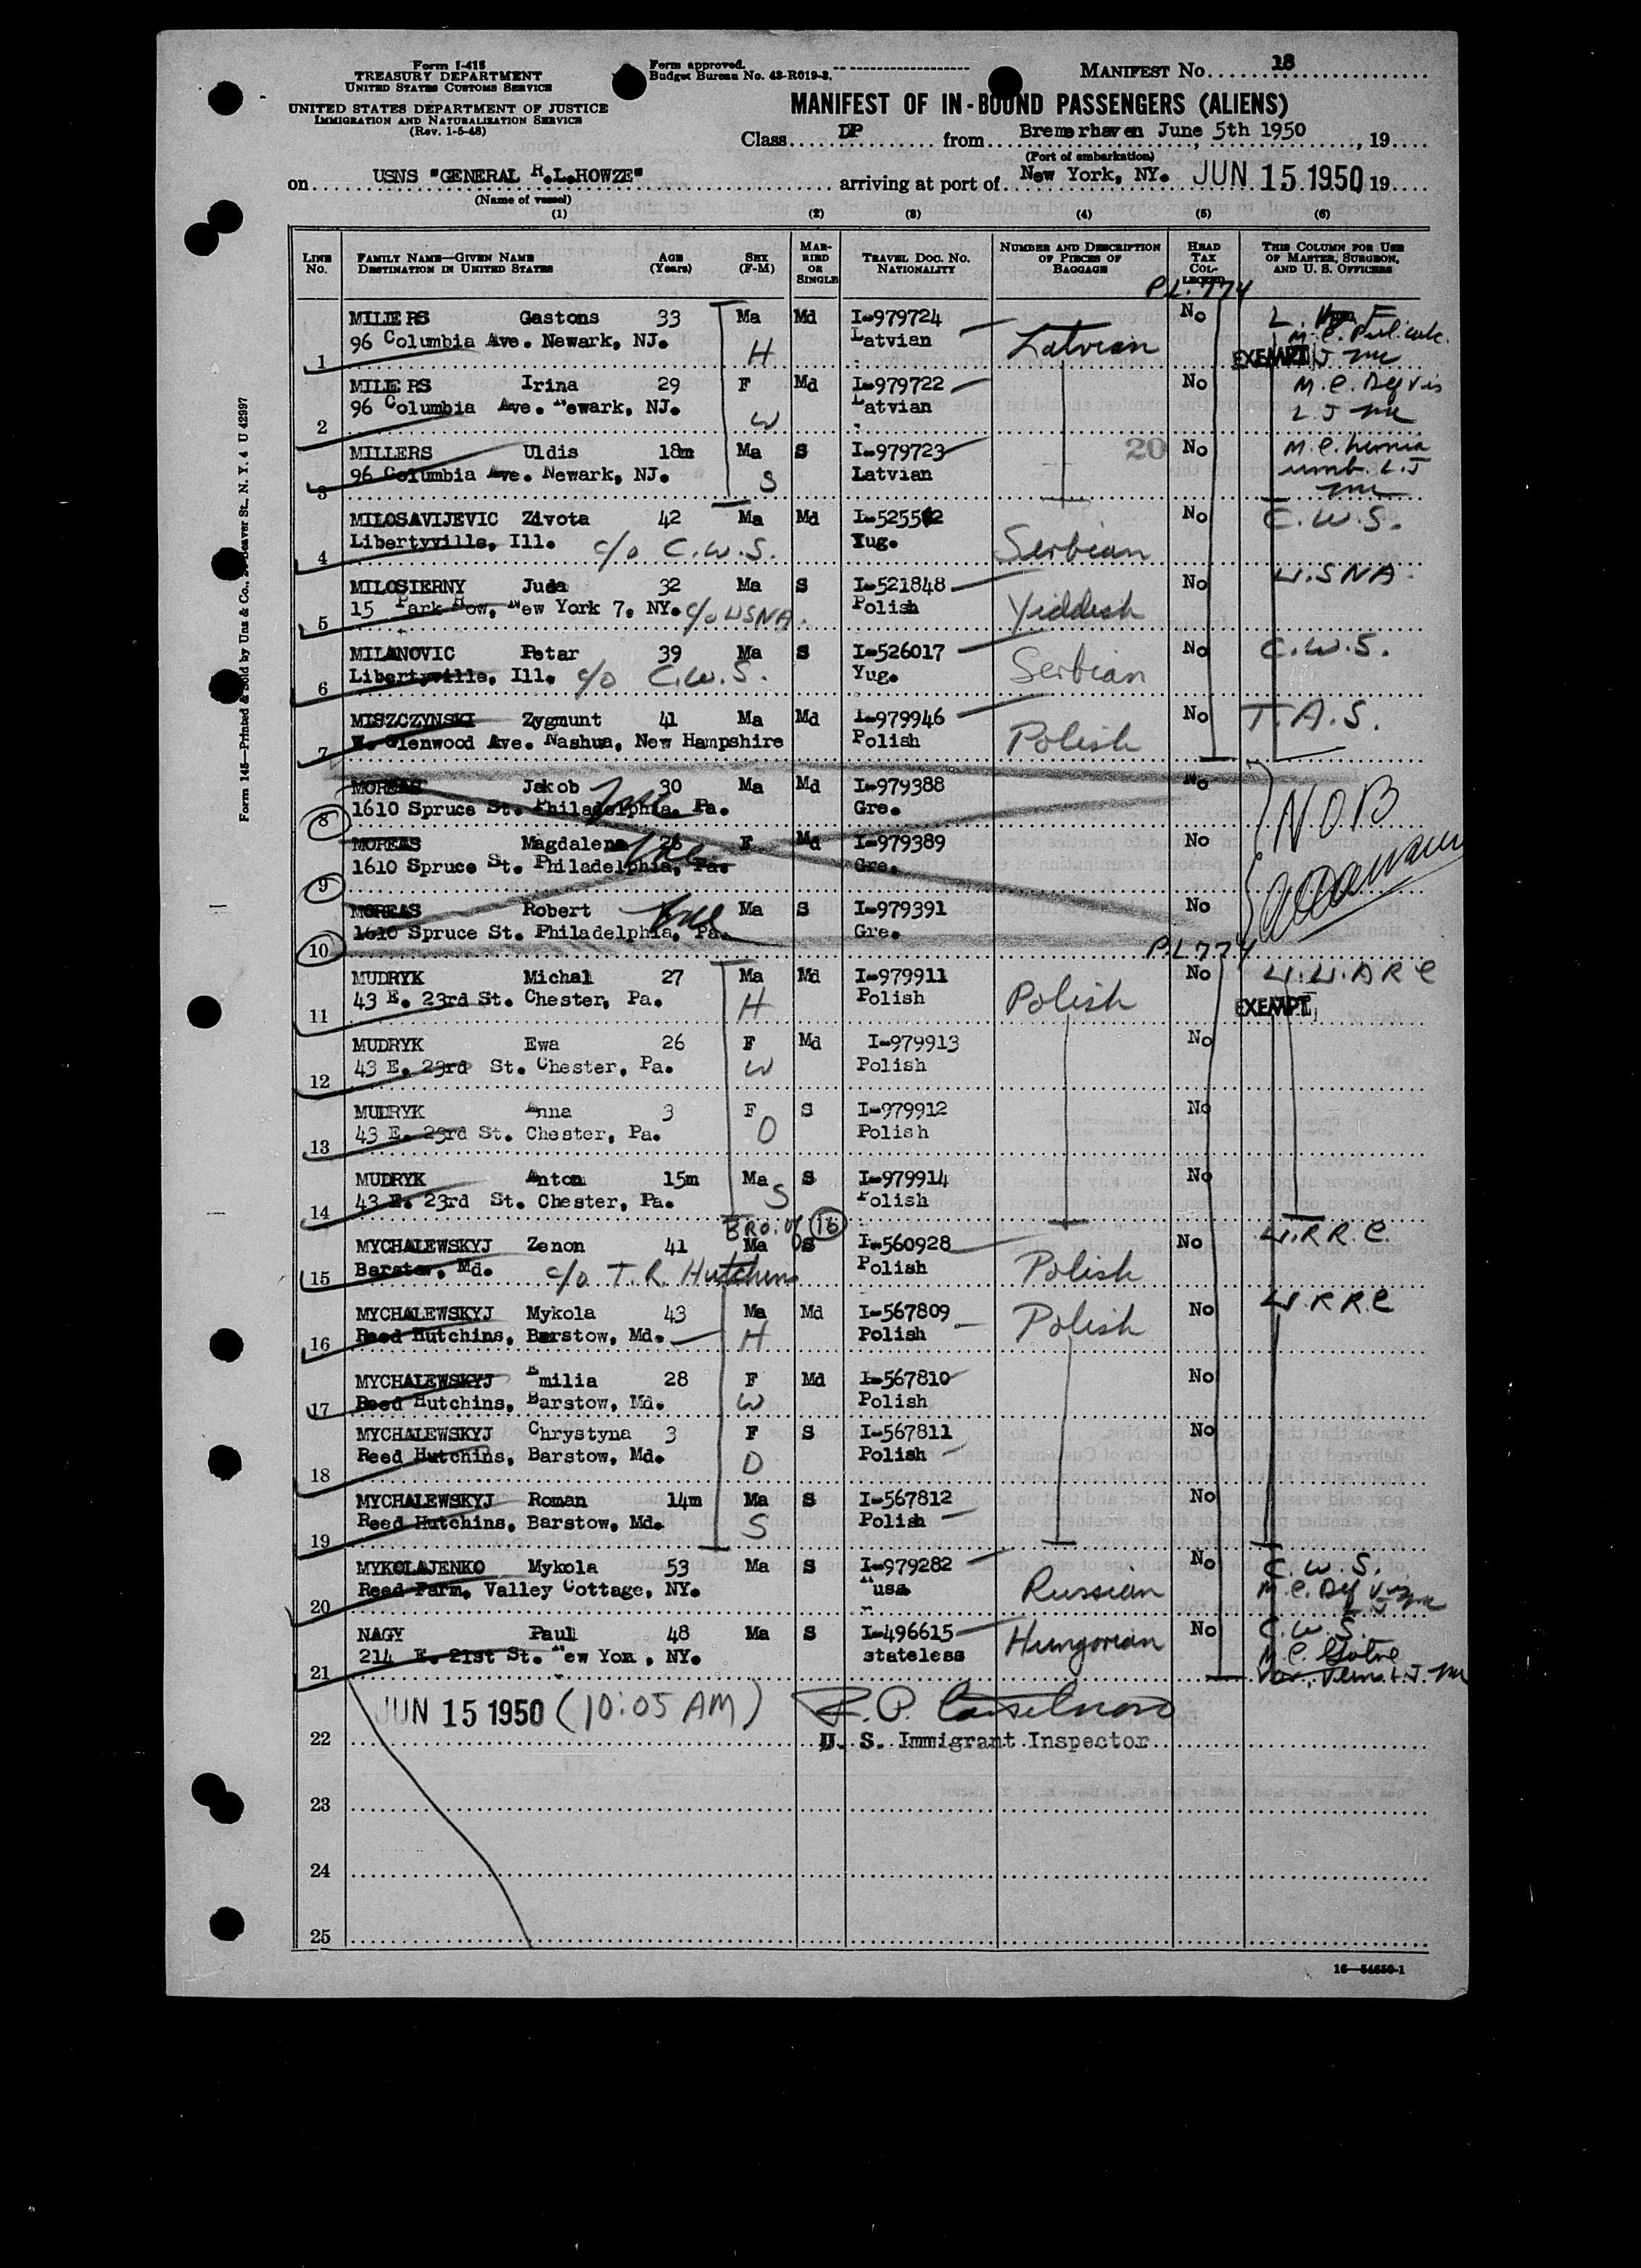 Form I-415
TREASURY DEPARTMENT
UNITED STATES CUSTOMS SERVICE
UNITED STATES DEPARTMENT OF JUSTICE
IMMIGRATION AND NATURALIZATION SERVICE
(Rev. 1-5-48)
Form approved.
Budget Bureau No. 43-R019-3.
MANIFEST No. 18
MANIFEST OF IN-BOUND PASSENGERS (ALIENS)
Class DP from Bremerhaven June 5th 1950, 19
(Port of embarkation)
on USNS "GENERAL R.L.HOWZE" arriving at port of New York, NY. JUN 15 1950 19
(Name of vessel)
(1) (2) (3) (4) (5) (6)
LINE No. FAMILY NAME—GIVEN NAME DESTINATION IN UNITED STATES AGE (Years) SEX (F-M) MARRIED OR SINGLE TRAVEL DOC. NO. NATIONALITY NUMBER AND DESCRIPTION OF PIECES OF BAGGAGE HEAD TAX COLLECTED THIS COLUMN FOR USE OF MASTER, SURGEON, AND U. S. OFFICERS
P.L. 774
MILIERS Gastons 33 Ma Md I-979724 No
1 96 Columbia Ave. Newark, NJ. H Latvian Latvian EXEMPT
MILIERS Irina 29 F Md I-979722 No
2 96 Columbia Ave. Newark, NJ. W Latvian
MILLERS Uldis 18m Ma S I-979723 20 No M.C. hernia
3 96 Columbia Ave. Newark, NJ. S Latvian umb. L.J
MILOSAVIJEVIC Zivota 42 Ma Md No C.W.S.
4 Libertyville, Ill. c/o C.W.S. Yug. Serbian
MILOSIERNY Juda 32 Ma S I-521848 No USNA
5 15 Park Row, New York 7, NY. c/o USNA. Polish Yiddish
MILANOVIC Petar 39 Ma S I-526017 No C.W.S.
6 Libertyville, Ill. c/o C.W.S. Yug. Serbian
MISZCZYNSKI Zygmunt 41 Ma Md I-979946 No T.A.S.
7 Glenwood Ave. Nashua, New Hampshire Polish Polish
MOREAS Jakob 30 Ma Md I-979388 No NOB
8 1610 Spruce St. Philadelphia, Pa. Gre.
MOREAS Magdalena 26 F Md I-979389 No
9 1610 Spruce St. Philadelphia, Pa. Gre.
MOREAS Robert Ma S I-979391 No
10 1610 Spruce St. Philadelphia, Pa. Gre.
P.L. 774
MUDRYK Michal 27 Ma Md I-979911 No
11 43 E. 23rd St. Chester, Pa. H Polish Polish EXEMPT
MUDRYK Ewa 26 F Md I-979913 No
12 43 E. 23rd St. Chester, Pa. W Polish
MUDRYK Anna 3 F S I-979912 No
13 43 E. 23rd St. Chester, Pa. D Polish
MUDRYK Anton 15m Ma S I-979914 No
14 43 E. 23rd St. Chester, Pa. S Polish
BRO. of 16
MYCHALEWSKYJ Zenon 41 Ma S I-560928 No
15 Barstow, Md. c/o T. R. Hutchins Polish Polish
MYCHALEWSKYJ Mykola 43 Ma Md I-567809 No
16 Reed Hutchins, Barstow, Md. H Polish Polish
MYCHALEWSKYJ Emilia 28 F Md I-567810 No
17 Reed Hutchins, Barstow, Md. W Polish
MYCHALEWSKYJ Chrystyna 3 F S I-567811 No
18 Reed Hutchins, Barstow, Md. D Polish
MYCHALEWSKYJ Roman 14m Ma S I-567812 No
19 Reed Hutchins, Barstow, Md. S Polish
MYKOLAJENKO Mykola 53 Ma S I-979282 No C.W.S.
20 Reed Farm, Valley Cottage, NY. Russian
NAGY Paul 48 Ma S I-496615 No C.W.S.
21 214 E. 21st St. New York, NY. stateless Hungarian
JUN 15 1950 (10:05 AM)
22 U. S. Immigrant Inspector
23
24
25
16—54650-1